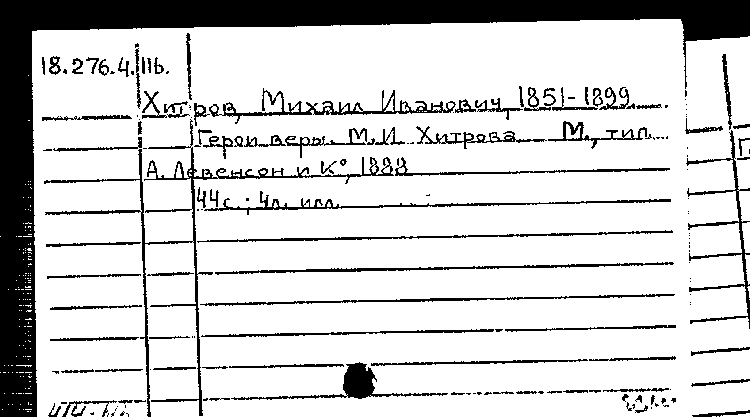 18.276.4.11b.
Хитров, Михаил Иванович, 1851-1899
Герои веры. М.И. Хитрова М., тип.
А. Левенсон и К°, 1888
44с.; 4л. илл.